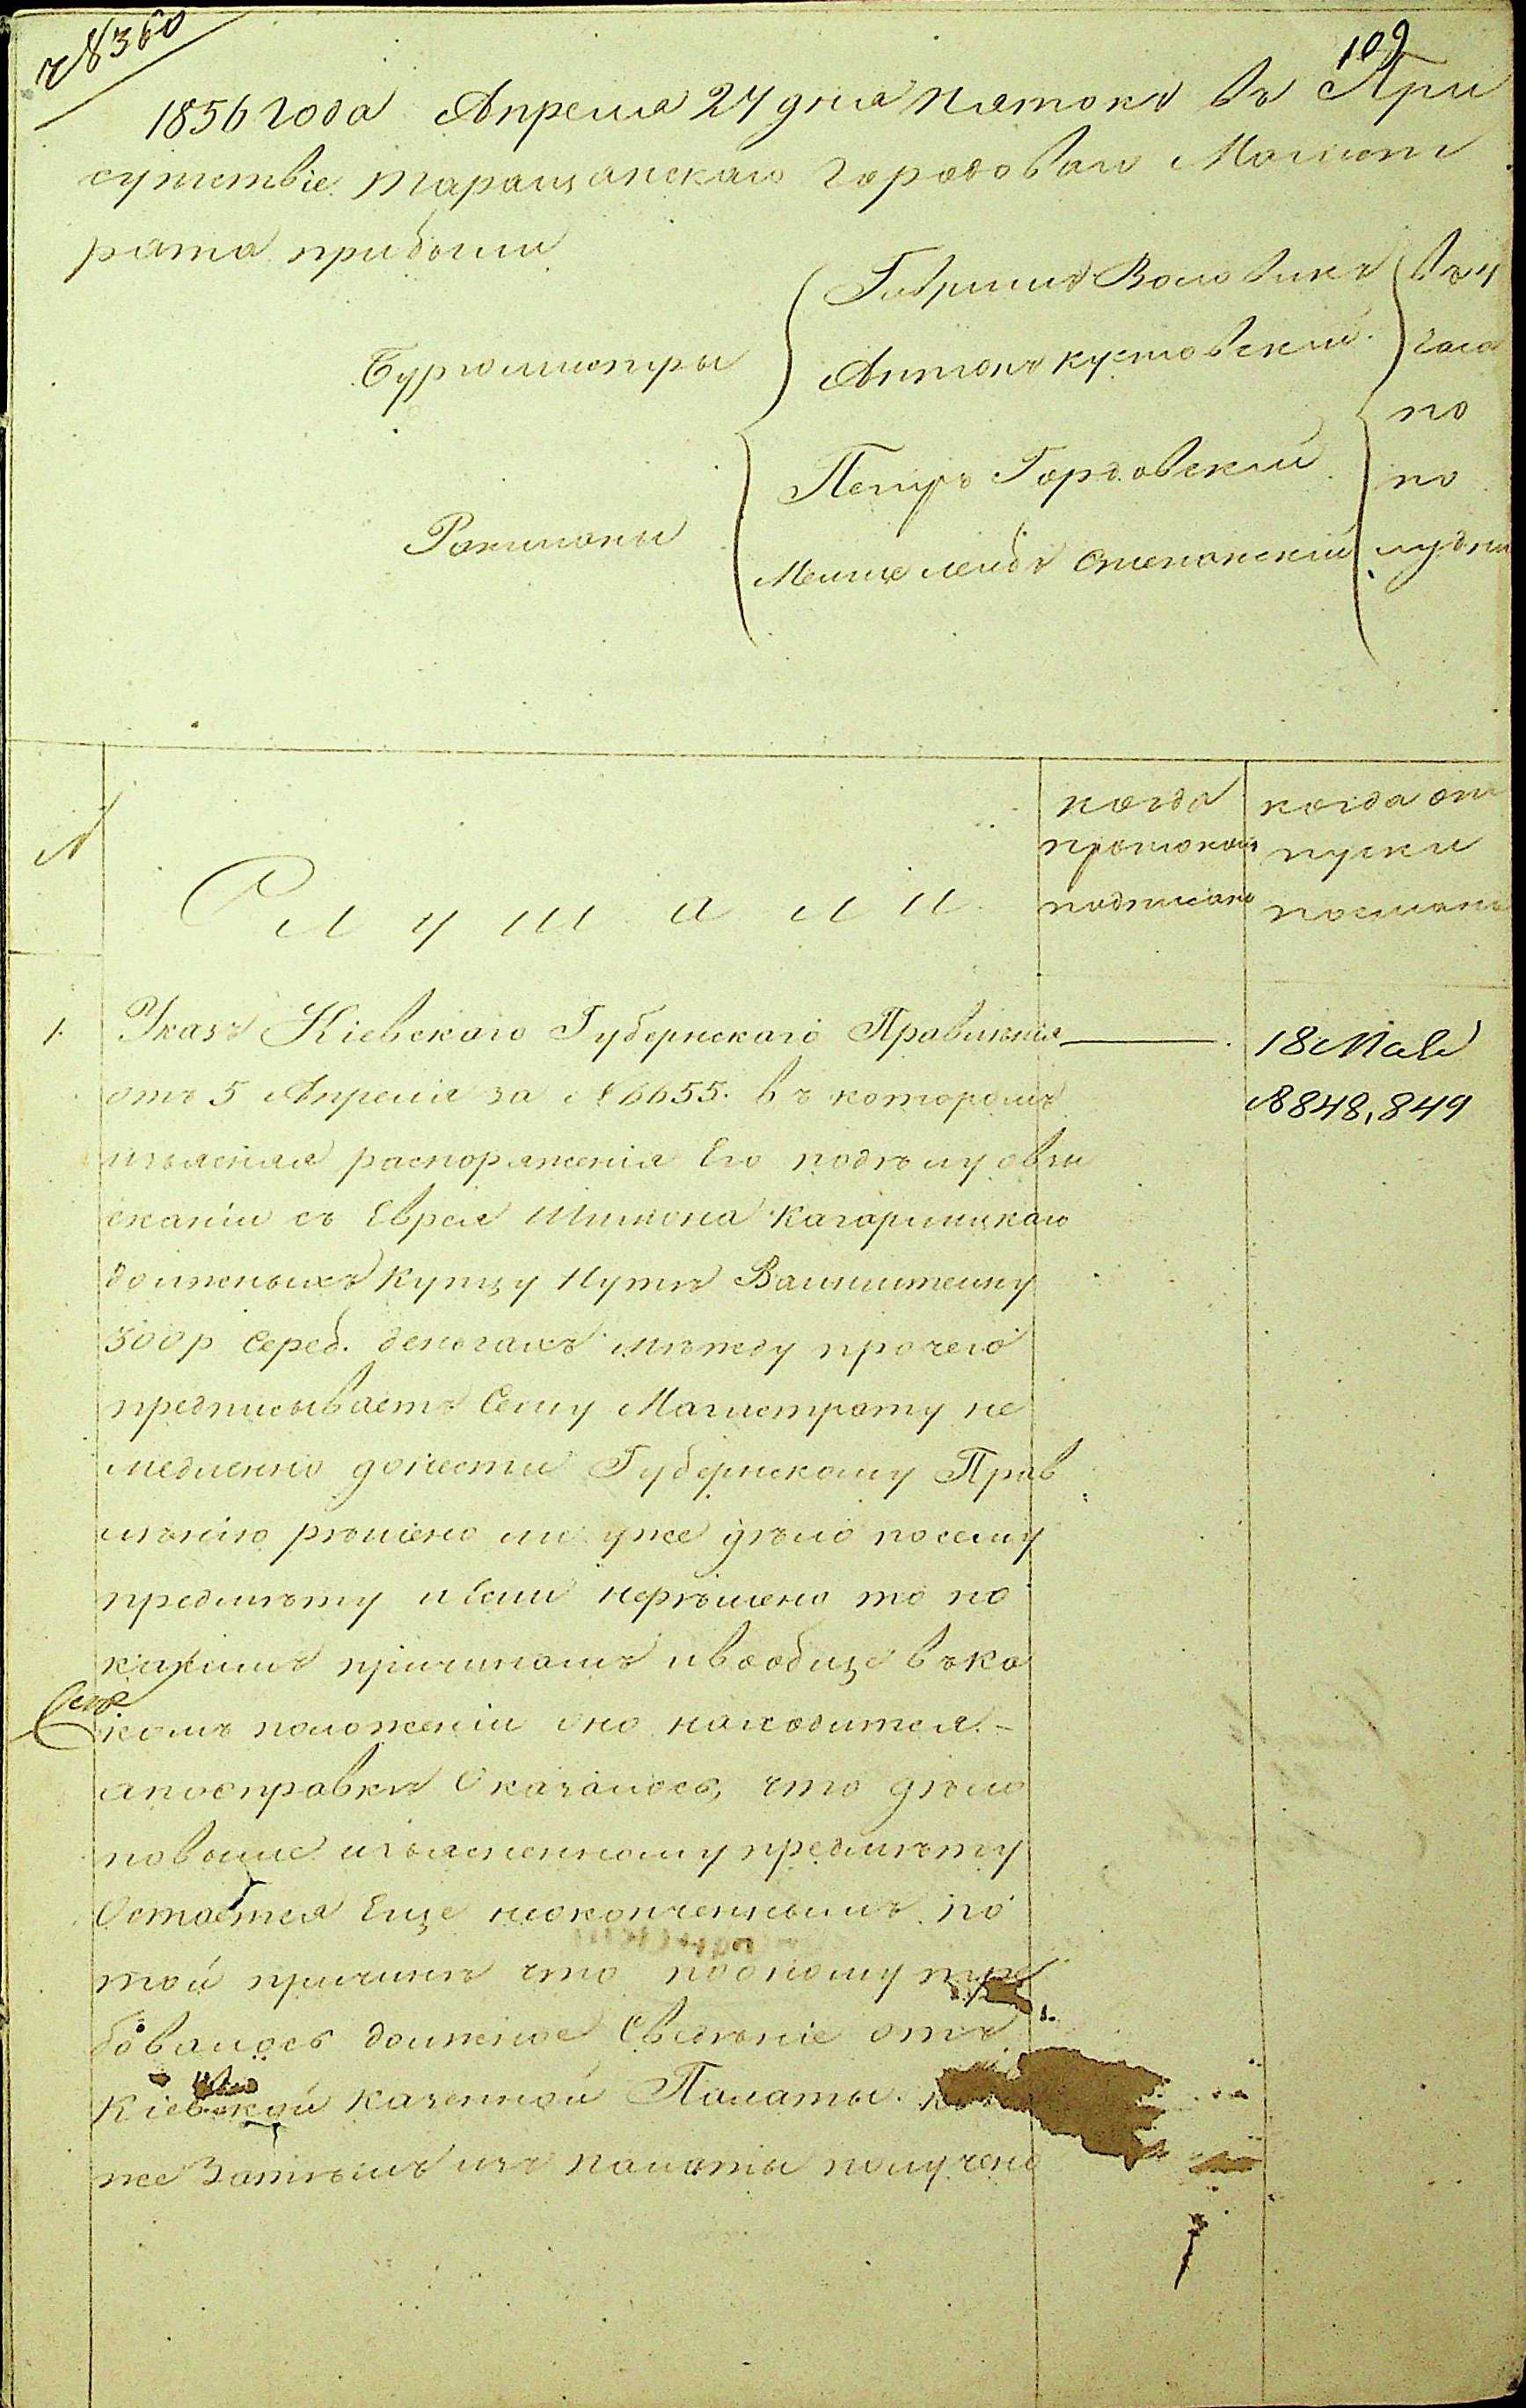 № 360
109
1856 года Апреля 27 дня Пятокъ Въ При
сутствіе Таращанскаго Городоваго Магист
рата прибыли
Бургомистры
Гаврилъ Воловикъ
Антонъ Кустовскій
въ 4
часа
по
по
лудни
Ратманы
Петръ Гордовскій
Лейбъ Степанскій
№
Слушали
когда
протоколъ
подписанъ
когда от
пуски
посланы
1.
Указъ Кіевскаго Губернскаго Правленія
отъ 5 Апреля за № 6655. въ которомъ
изъясняя распоряженія Его по дѣлу о взы
сканіи съ Еврея Шимона Кагарлицкаго
должныхъ Купцу Нутѣ Ваинштеину
300 р серед. деньгахъ мѣжду прочего
предписываетъ Сему Магистрату не
медленно донести Губернскому Прав
лѣнію рѣшено ли уже дѣло по сему
предмѣту и Если нерѣшено то по
какимъ причинамъ и вообще въ ка
комъ положеніи оно находится. -
а по справкѣ Оказалось, что дѣло
по выше изъясненному предмѣту
Остаётся Еще неоконченнымъ по
той причинѣ что по оному тре
бовалось должное Свѣдѣніе отъ
Кіевской казенной Палаты.
же Затѣмъ изъ палаты получено
18 Мая
№ 848, 849